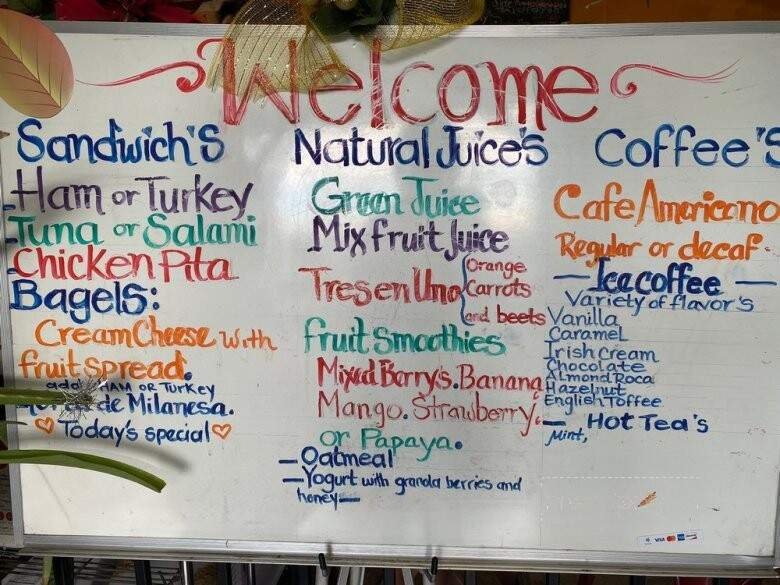 Welcome
Sandwich's
Ham or Turkey
Tuna or Salami
Chicken Pita
Bagels:
Cream Cheese with
fruit spread.
add HAM OR TURKEY
de Milanesa.
Today's special
Natural Juice's
Green Juice
Mix fruit Juice
Tres en Uno
Orange
Carrots
and beets
fruit Smoothies
Mixed Berry's. Banana
Mango. Strawberry.
or Papaya.
- Oatmeal
- Yogurt with granola berries and
honey -
Coffee's
Cafe Americano
Regular or decaf.
- Ice coffee -
Variety of flavor's
Vanilla
Caramel
Irish cream
Chocolate
Almond Roca
Hazelnut
English Toffee
- Hot Tea's
Mint,
VISA